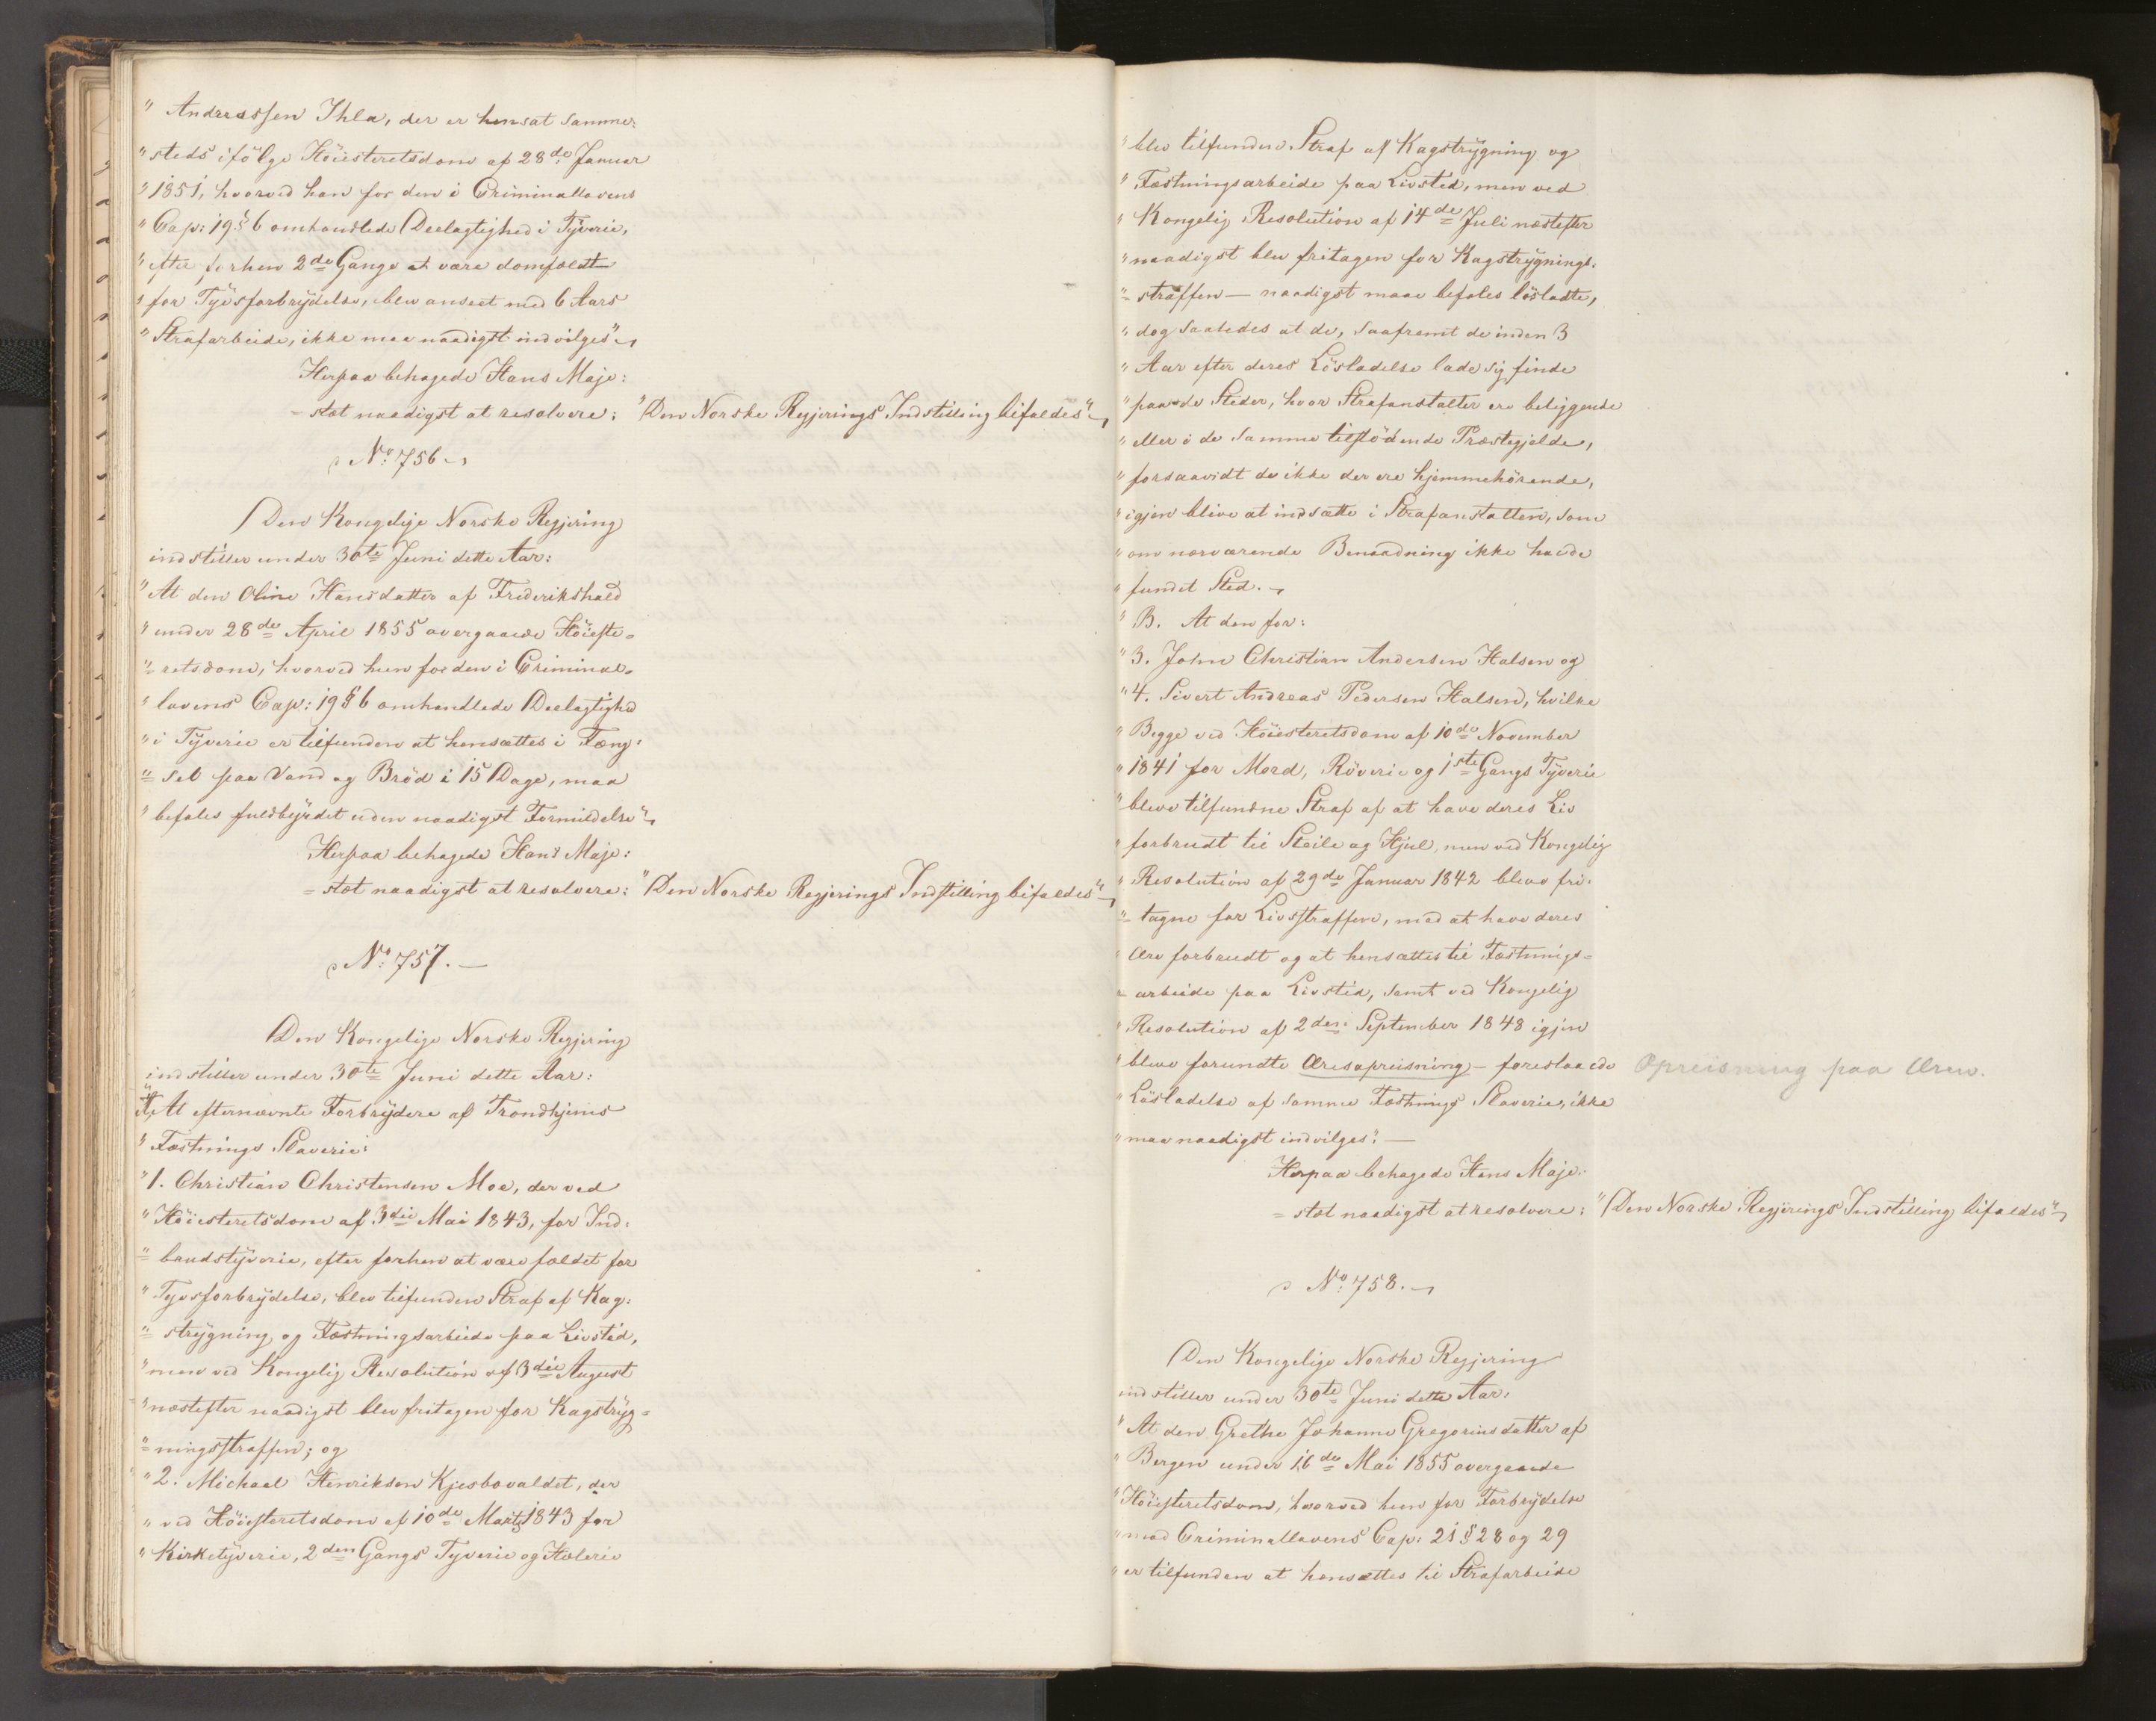 " Andreassen Ihla, der er hensat samme-
" steds ifølge Höiesteretsdom af 28de Januar
" 1851, hvorved han for den i Criminallovens
" Cap: 19 § 6 omhandlede Deelagtighed i Tyverie,
" efter forhen 2de Gange at være domfældt
" for Tyvsforbrydelse, blev anseet med 6 Aars
" Strafarbeide, ikke maa naadigst indvilges"
Herpaa behagede Hans Maje:
= stæt naadigst at resolvere: "Den Norske Regjerings Indstilling bifaldes"
No: 756
Den Kongelige Norske Regjering
indstiller under 30te Juni dette Aar:
" At den Oline Hansdatter af Frederikshald
" under 28de April 1855 overgaaede Höieste-
"= retsdom, hvorved hun for den i Criminal-
" lovens Cap: 19 § 6 omhandlede Deelagtighed
" i Tyverie er tilfunden at hensættes i Fæng-
"= sel paa Vand og Bröd i 15 Dage, maa
" befales fuldbyrdet uden naadigst Formildelse"
Herpaa behagede Hans Maje:
= stæt naadigst at resolvere: "Den Norske Regjerings Indstilling bifaldes"
No: 757. —
Den Kongelige Norske Regjering
indstiller under 30te Juni dette Aar:
"A, At efternævnte Forbrydere af Trondhjems
" Fæstnings Slaverie:
" 1. Christian Christensen Moe, der ved
" Höiesteretsdom af 3die Mai 1843, for Ind-
"= brudstyverie, efter forhen at være fældet for
" Tyvsforbrydelse, blev tilfunden Straf af Kag-
"= strygning og Fæstningsarbeide paa Livstid,
" men ved Kongelig Resolution af 3die August
" næstefter naadigst blev fritagen for Kagstryg-
"= ningsstraffen; og
" 2. Michael Henriksen Kjesbovaldet, der
" ved Höiesteretsdom af 10de Marts 1843 for
" Kirketyverie, 2den Gangs Tyverie og Hælerie
" blev tilfunden Straf af Kagstrygning og
" Fæstningsarbeide paa Livstid, men ved
" Kongelig Resolution af 14de Juli næstefter
" naadigst blev fritagen for Kagstrygnings-
"= straffen — naadigst maae befales lösladte,
" dog saaledes at de, saafremt de inden 3
" Aar efter deres Lösladelse lade sig finde
" paa de Steder, hvor Strafanstalter ere beliggende
" eller i de samme tilstödende Præstegjelde,
" forsaavidt de ikke der ere hjemmehörende,
" igjen blive at indsætte i Strafanstalten, som
" om nærværende Benaadning ikke havde
" fundet Sted.
" B. At den for:
" 3. John Christian Andersen Halsen og
" 4. Sivert Andreas Pedersen Halsend, hvilke
" Begge ved Höiesteretsdom af 10de November
" 1841 for Mord, Röverie og 1ste Gangs Tyverie
" bleve tilfundne Straf af at have deres Liv
" forbrudt til Steile og Hjul, men ved Kongelig
" Resolution af 29de Januar 1842 bleve fri-
"= tagne for Livsstraffen, mod at have deres
" Ære forbrudt og at hensættes til Fæstnings-
"= arbeide paa Livstid, samt ved Kongelig
" Resolution af 2den September 1848 igjen
" bleve forundte Æresopreisning – foreslaaede Opreisning paa Æren.
" Lösladelse af samme Fæstnings Slaverie, ikke
" maa naadigst indvilges". —
Herpaa behagede Hans Maje:
= stæt naadigst at resolvere: "Den Norske Regjerings Indstilling bifaldes"
No: 758.
Den Kongelige Norske Regjering
indstiller under 30te Juni dette Aar:
" At den Grethe Johanne Gregoriusdatter af
" Bergen under 16de Mai 1855 overgaaede
" Höiesteretsdom, hvorved hun for Forbrydelse
" mod Criminallovens Cap: 21 § 28 og 29
" er tilfunden at hensættes til Strafarbeide